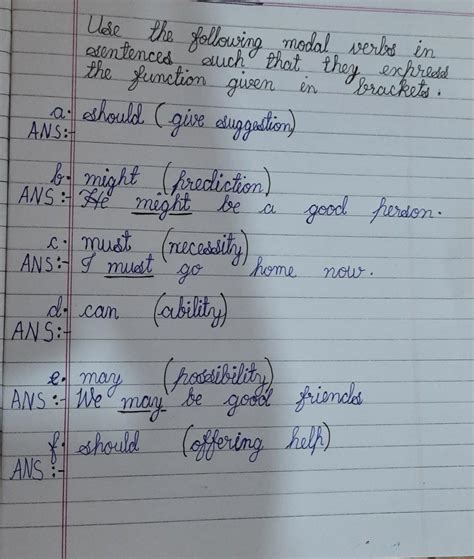 Use the following modal verbs in
sentences such that they express
the function given in brackets.
a. should (give suggestion)
ANS:-
b. might (prediction)
ANS:- He might be a good person.
c. must (necessity)
ANS:- I must go home now.
d. can (ability)
ANS:-
e. may (possibility)
ANS:- We may be good friends
f. should (offering help)
ANS:-